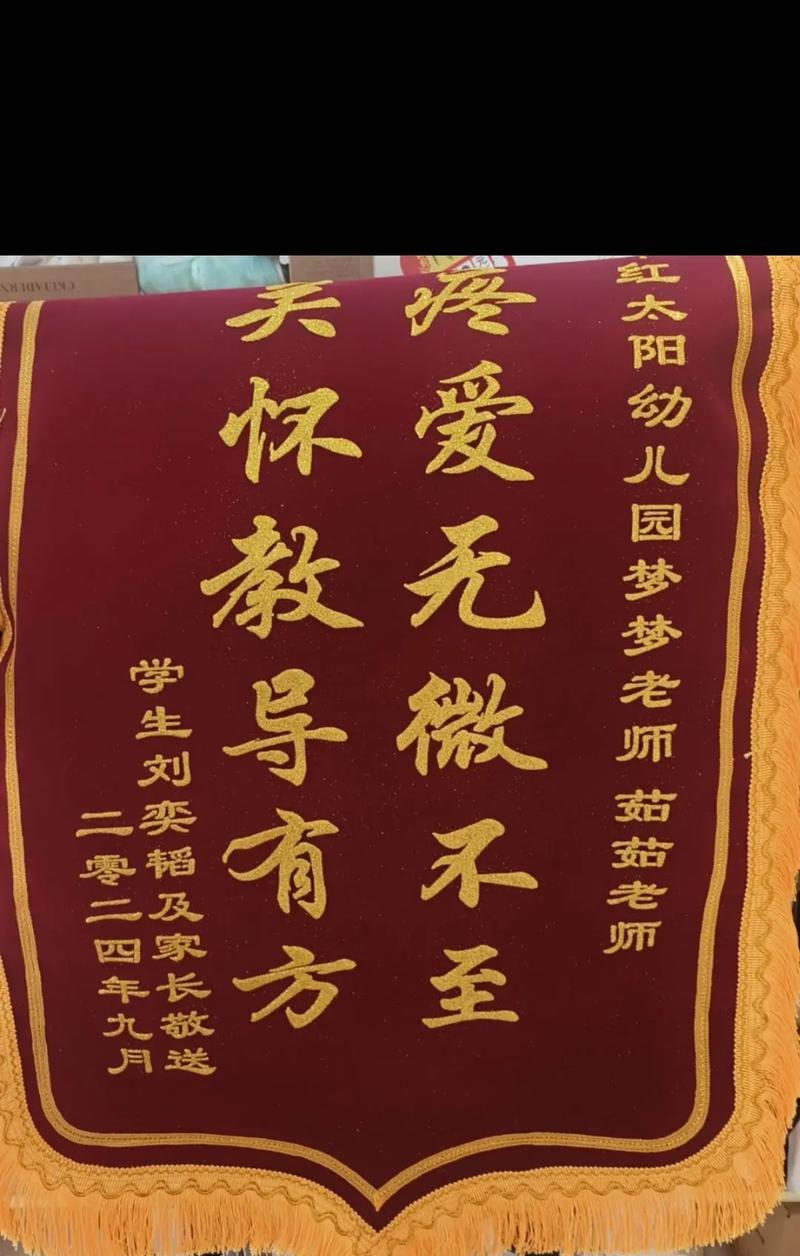 红太阳幼儿园梦梦老师茹茹老师
疼爱无微不至
关怀教导有方
学生刘奕韬及家长敬送
二零二四年九月